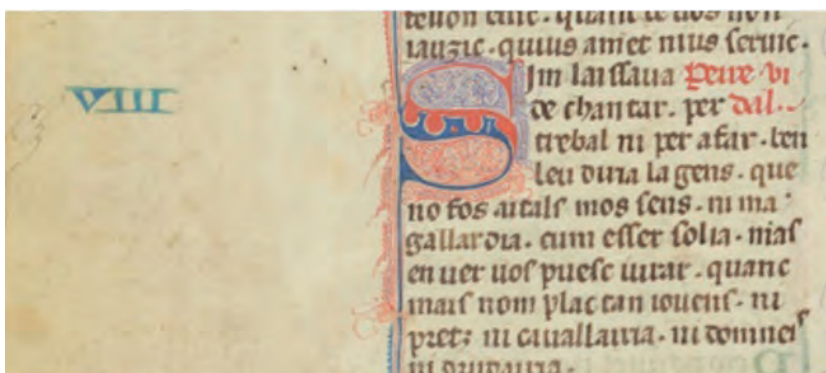 VIII
iauzic. quius amet nius seruic.
Sim laissaua Peire vi
de chantar. per dal.
trebal ni per afar. ben
leu diria la gens. que
no fos aitals mos sens. ni ma
gallardia. cum esser solia. mas
en uer uos puesc iurar. quanc
mais nom plac tan iouens. ni
pretz ni cauallaria. ni domneis
ni drudaria.